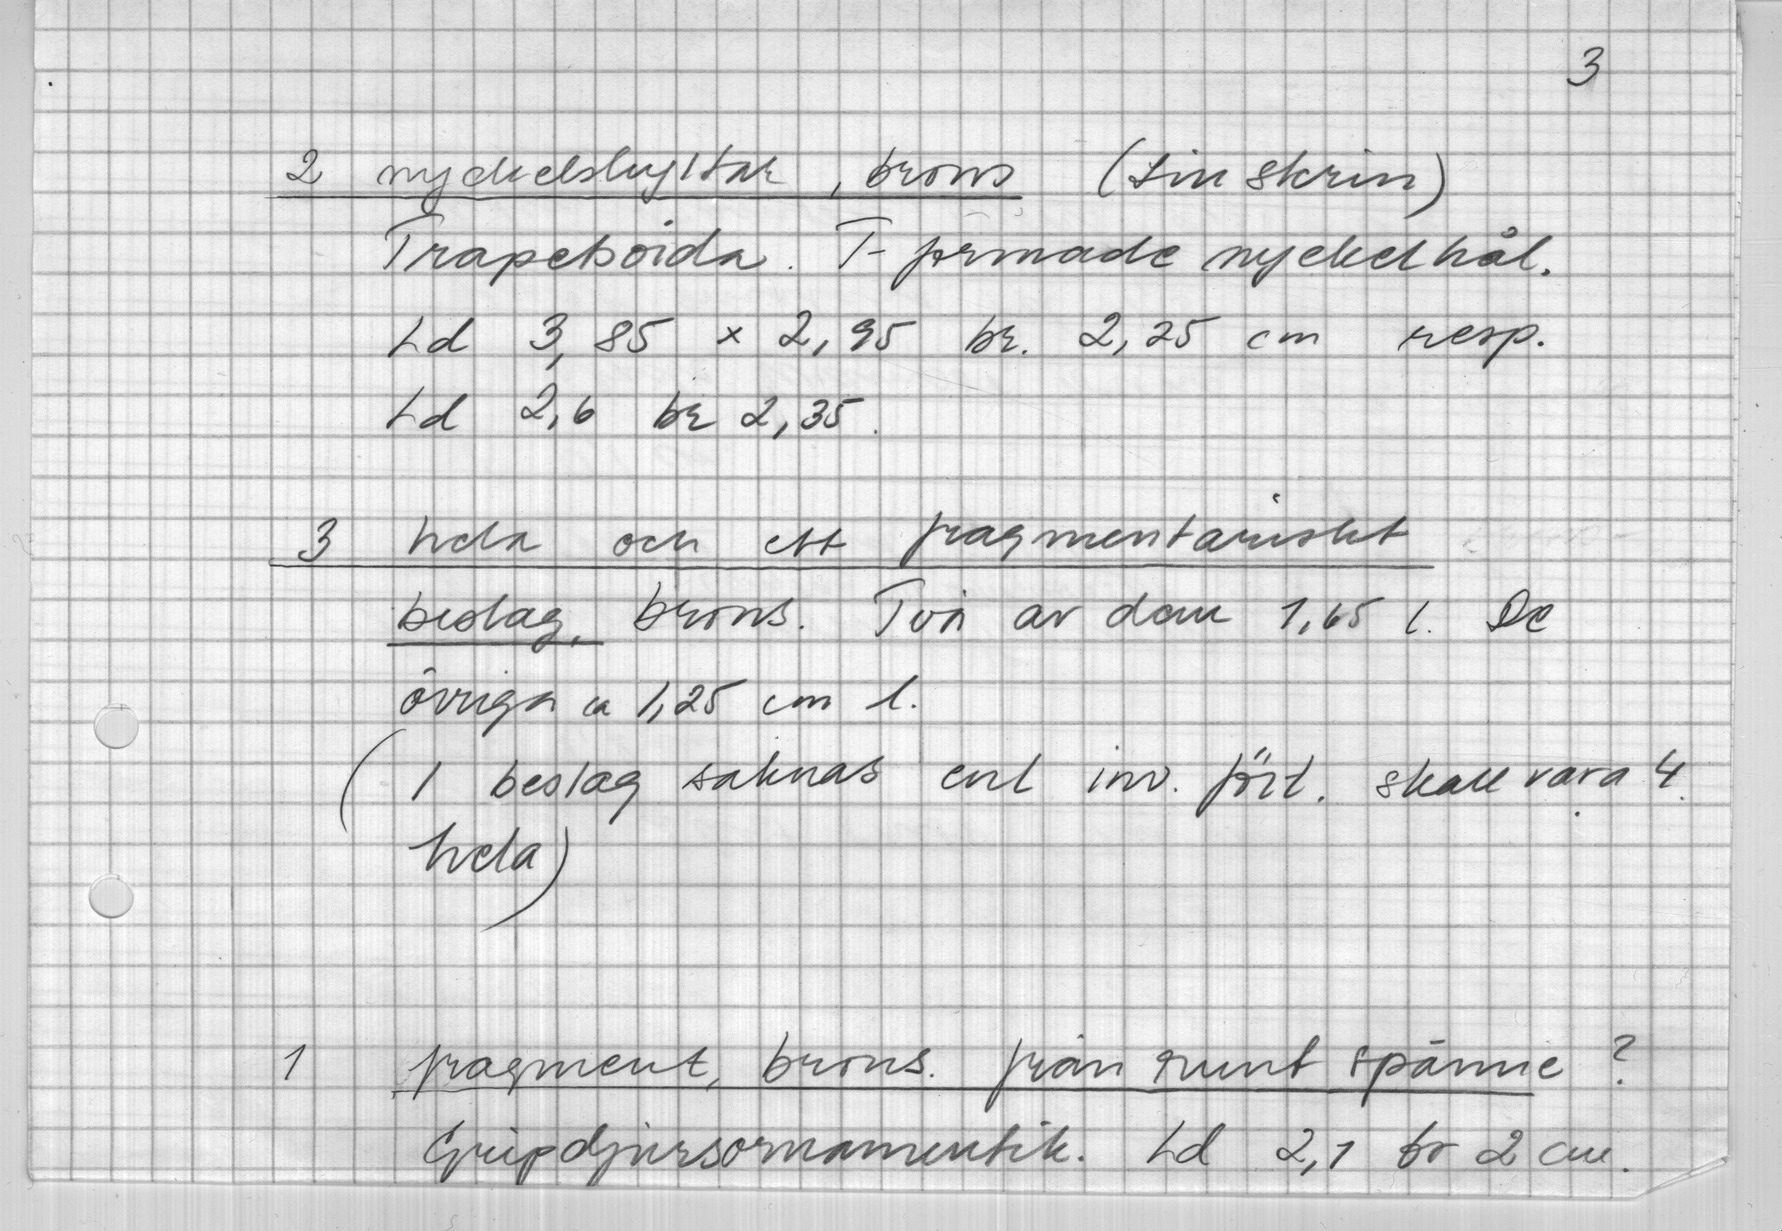 3
2 nyckelskyltar, brons (till skrin)
Trapetsoida. T-formade nyckelhål.
Ld 3,85 x 2,95 br. 2,25 cm resp.
Ld 2,6 br 2,35.
3 hela och ett fragmentariskt
beslag, brons. Två av dem 1,65 l. De
övriga ca 1,25 cm l.
(1 beslag saknas enl inv. fört. skall vara 4
hela)
1 fragment, brons. från runt spänne ?
Gripdjursornamentik. Ld 2,1 br 2 cm.